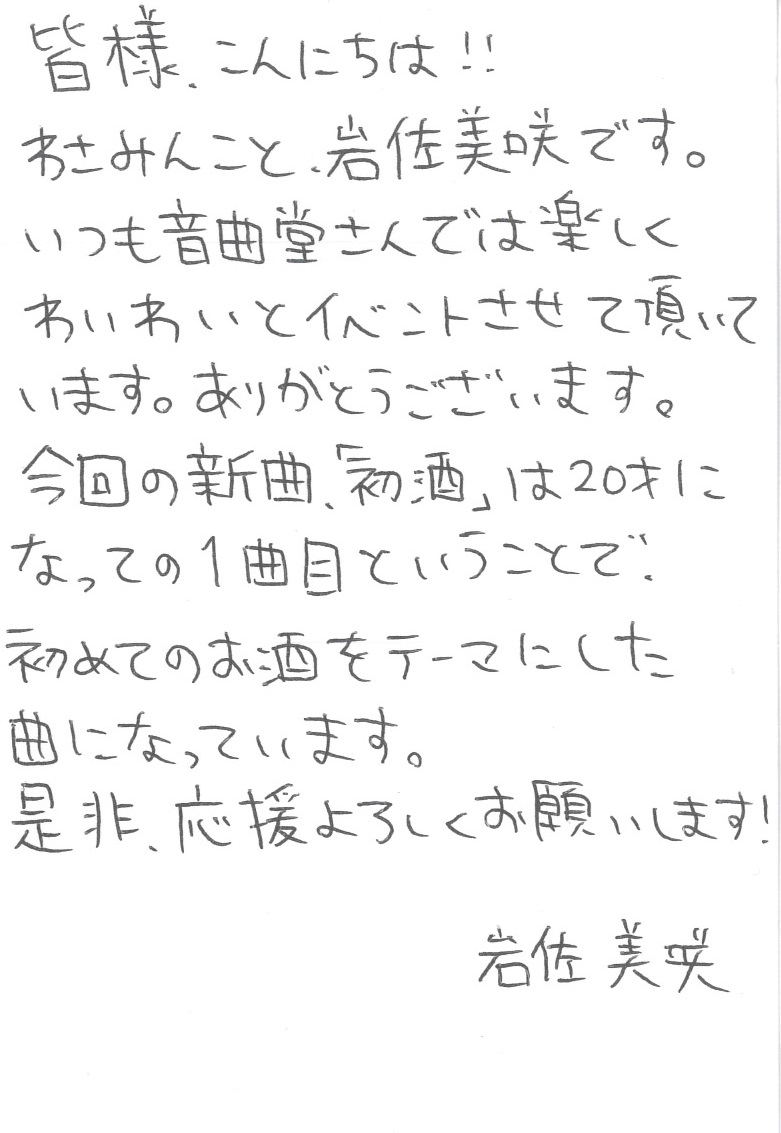 皆様、こんにちは!!
わさみんこと、岩佐美咲です。
いつも音曲堂さんでは楽しく
わいわいとイベントさせて頂いて
います。ありがとうございます。
今回の新曲、「初酒」は20才に
なっての1曲目ということで、
初めてのお酒をテーマにした
曲になっています。
是非、応援よろしくお願いします!
岩佐美咲